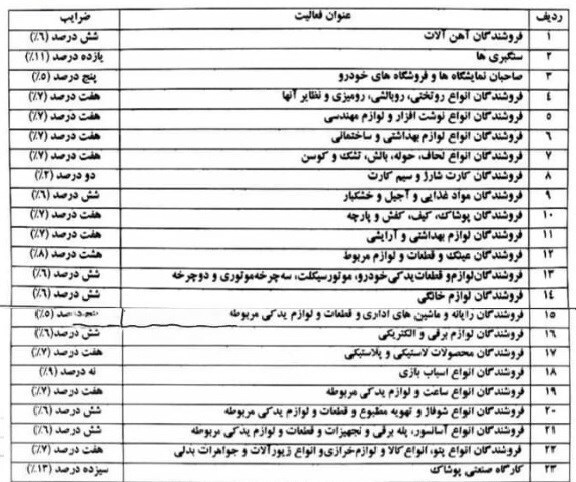 ردیف عنوان فعالیت ضرایب
۱ فروشندگان آهن آلات شش درصد (۶٪)
۲ سنگبری ها یازده درصد (۱۱٪)
۳ صاحبان نمایشگاه ها و فروشگاه های خودرو پنج درصد (۵٪)
۴ فروشندگان انواع روتختی، روبالشی، رومیزی و نظایر آنها هفت درصد (۷٪)
۵ فروشندگان انواع نوشت افزار و لوازم مهندسی هفت درصد (۷٪)
۶ فروشندگان انواع لوازم بهداشتی و ساختمانی هفت درصد (۷٪)
۷ فروشندگان انواع لحاف، حوله، بالش، تشک و کوسن هفت درصد (۷٪)
۸ فروشندگان کارت شارژ و سیم کارت دو درصد (۲٪)
۹ فروشندگان مواد غذایی و آجیل و خشکبار شش درصد (۶٪)
۱۰ فروشندگان پوشاک، کیف، کفش و پارچه هفت درصد (۷٪)
۱۱ فروشندگان لوازم بهداشتی و آرایشی هفت درصد (۷٪)
۱۲ فروشندگان عینک و قطعات و لوازم مربوط هشت درصد (۸٪)
۱۳ فروشندگان لوازم و قطعات یدکی خودرو، موتورسیکلت، سه چرخه موتوری و دوچرخه شش درصد (۶٪)
۱۴ فروشندگان لوازم خانگی شش درصد (۶٪)
۱۵ فروشندگان رایانه و ماشین های اداری و قطعات و لوازم یدکی مربوطه درصد (۵٪)
۱۶ فروشندگان لوازم برقی و الکتریکی شش درصد (۶٪)
۱۷ فروشندگان محصولات لاستیکی و پلاستیکی هفت درصد (۷٪)
۱۸ فروشندگان انواع اسباب بازی نه درصد (۹٪)
۱۹ فروشندگان انواع ساعت و لوازم یدکی مربوطه هفت درصد (۷٪)
۲۰ فروشندگان انواع شوفاژ و تهویه مطبوع و قطعات و لوازم یدکی مربوطه شش درصد (۶٪)
۲۱ فروشندگان انواع آسانسور، پله برقی و تجهیزات و قطعات و لوازم یدکی مربوطه شش درصد (۶٪)
۲۲ فروشندگان انواع پتو، انواع کالا و لوازم خرازی و انواع زیورآلات و جواهرات بدلی هفت درصد (۷٪)
۲۳ کارگاه صنعتی پوشاک سیزده درصد (۱۳٪)